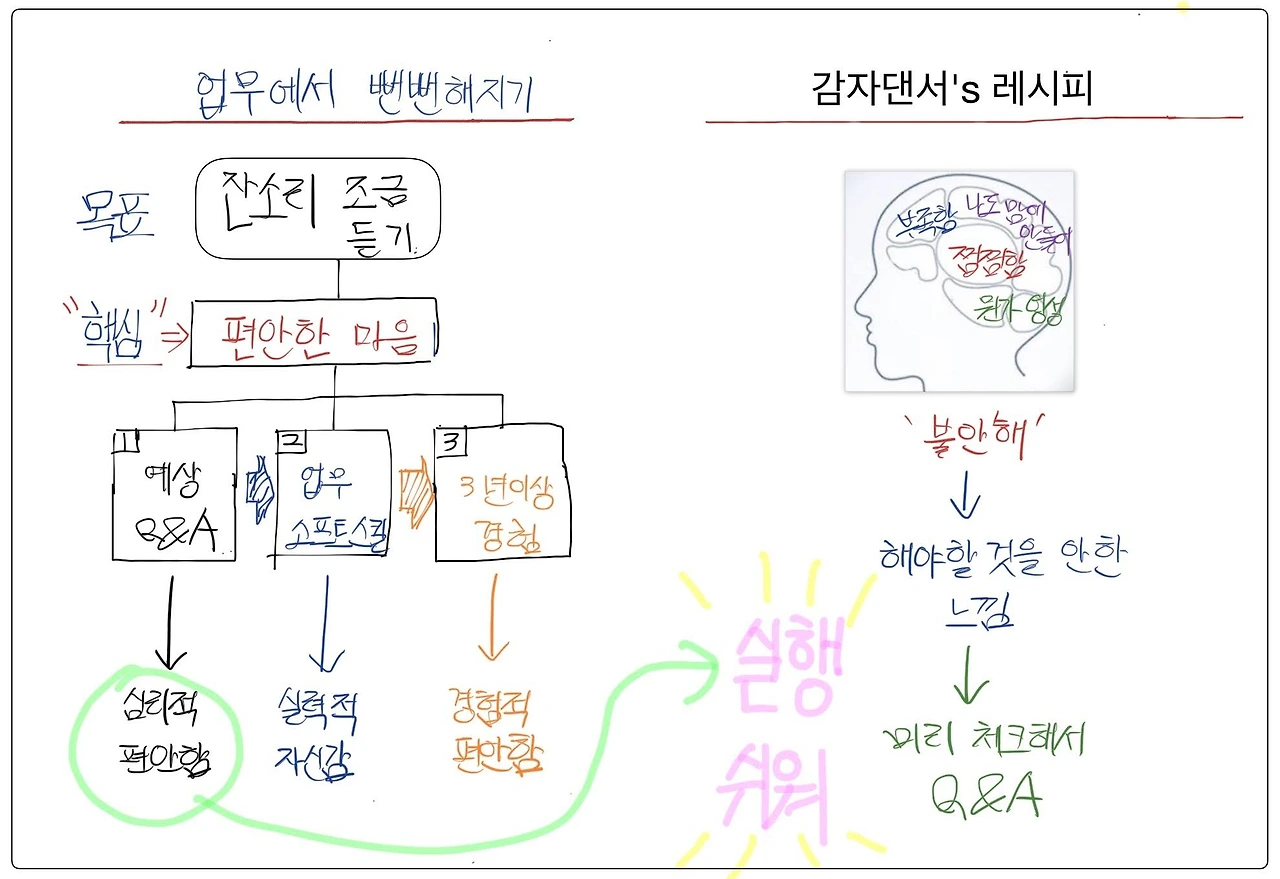 업무에서 뻔뻔해지기
목표
잔소리 조금
듣기
"핵심" ⇒ 편안한 마음
1
예상
Q&A
2
업무
소프트스킬
3
3년이상
경험
심리적
편안함
실력적
자신감
경험적
편안함
실행
쉬워
감자댄서's 레시피
부족함
나도 맘에
안들어
찜찜함
뭔가 엉성
'불안해'
해야할 것을 안한
느낌
미리 체크해서
Q&A